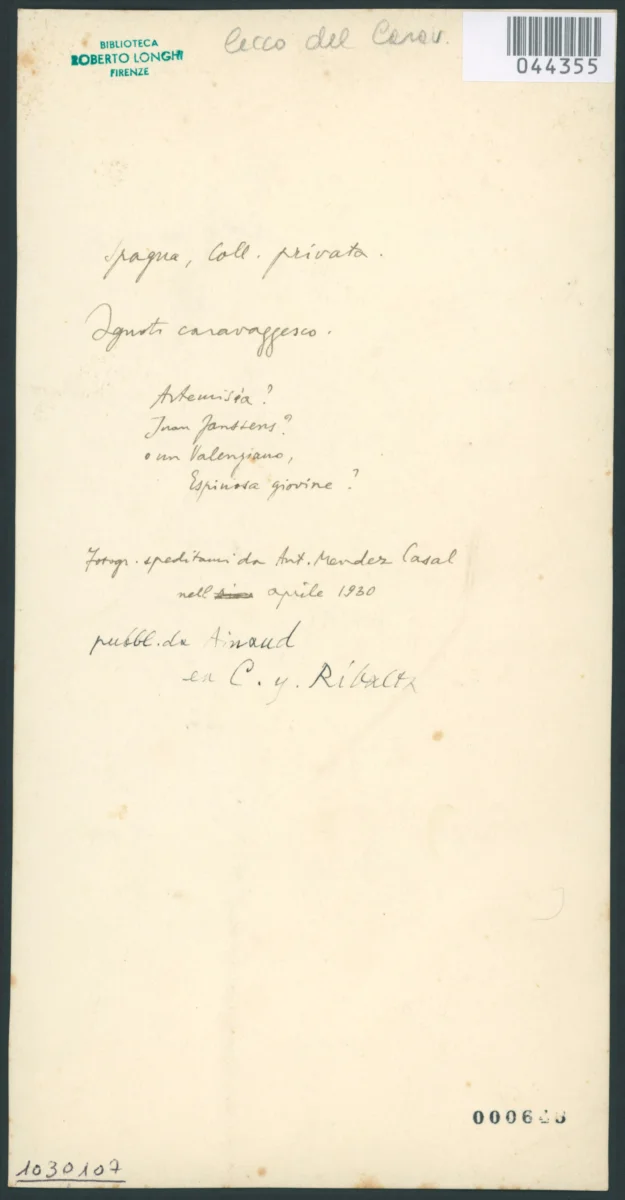 BIBLIOTECA
ROBERTO LONGHI
FIRENZE
Cecco del Carav.
044355
Spagna, Coll. privata.
Ignoti caravaggesco.
Artemisia?
Juan Janssens?
o un Valenziano,
Espinosa giovine?
Fotogr. speditami da Ant. Mendez Casal
nell aprile 1930
pubbl. da Ainaud
en C. y. Ribalta
0006
1030107